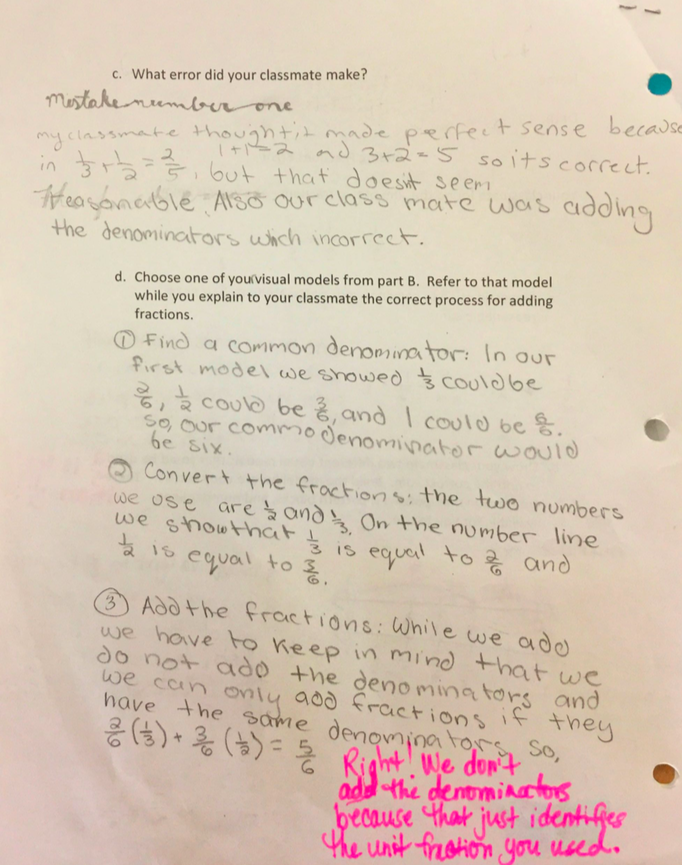 c. What error did your classmate make?
Mistake number one
my classmate thought it made perfect sense because
in 1/3 + 1/2 = 2/5, 1+1=2 and 3+2=5 so its correct.
but that doesn't seem
reasonable. Also our class mate was adding
the denominators wich incorrect.
d. Choose one of your visual models from part B. Refer to that model
while you explain to your classmate the correct process for adding
fractions.
① Find a common denominator: In our
first model we showed 1/3 could be
2/6, 1/2 could be 3/6, and 1 could be 6/6.
so, our commo denominator would
be six.
② Convert the fractions: the two numbers
we use are 1/2 and 1/3. On the number line
we show that 1/3 is equal to 2/6 and
1/2 is equal to 3/6.
③ Add the fractions: While we add
we have to keep in mind that we
do not add the denominators and
we can only add fractions if they
have the same denominators, so,
2/6 (1/3) + 3/6 (1/2) = 5/6
Right! We don't
add the denominators
because that just identifies
the unit fraction you used.